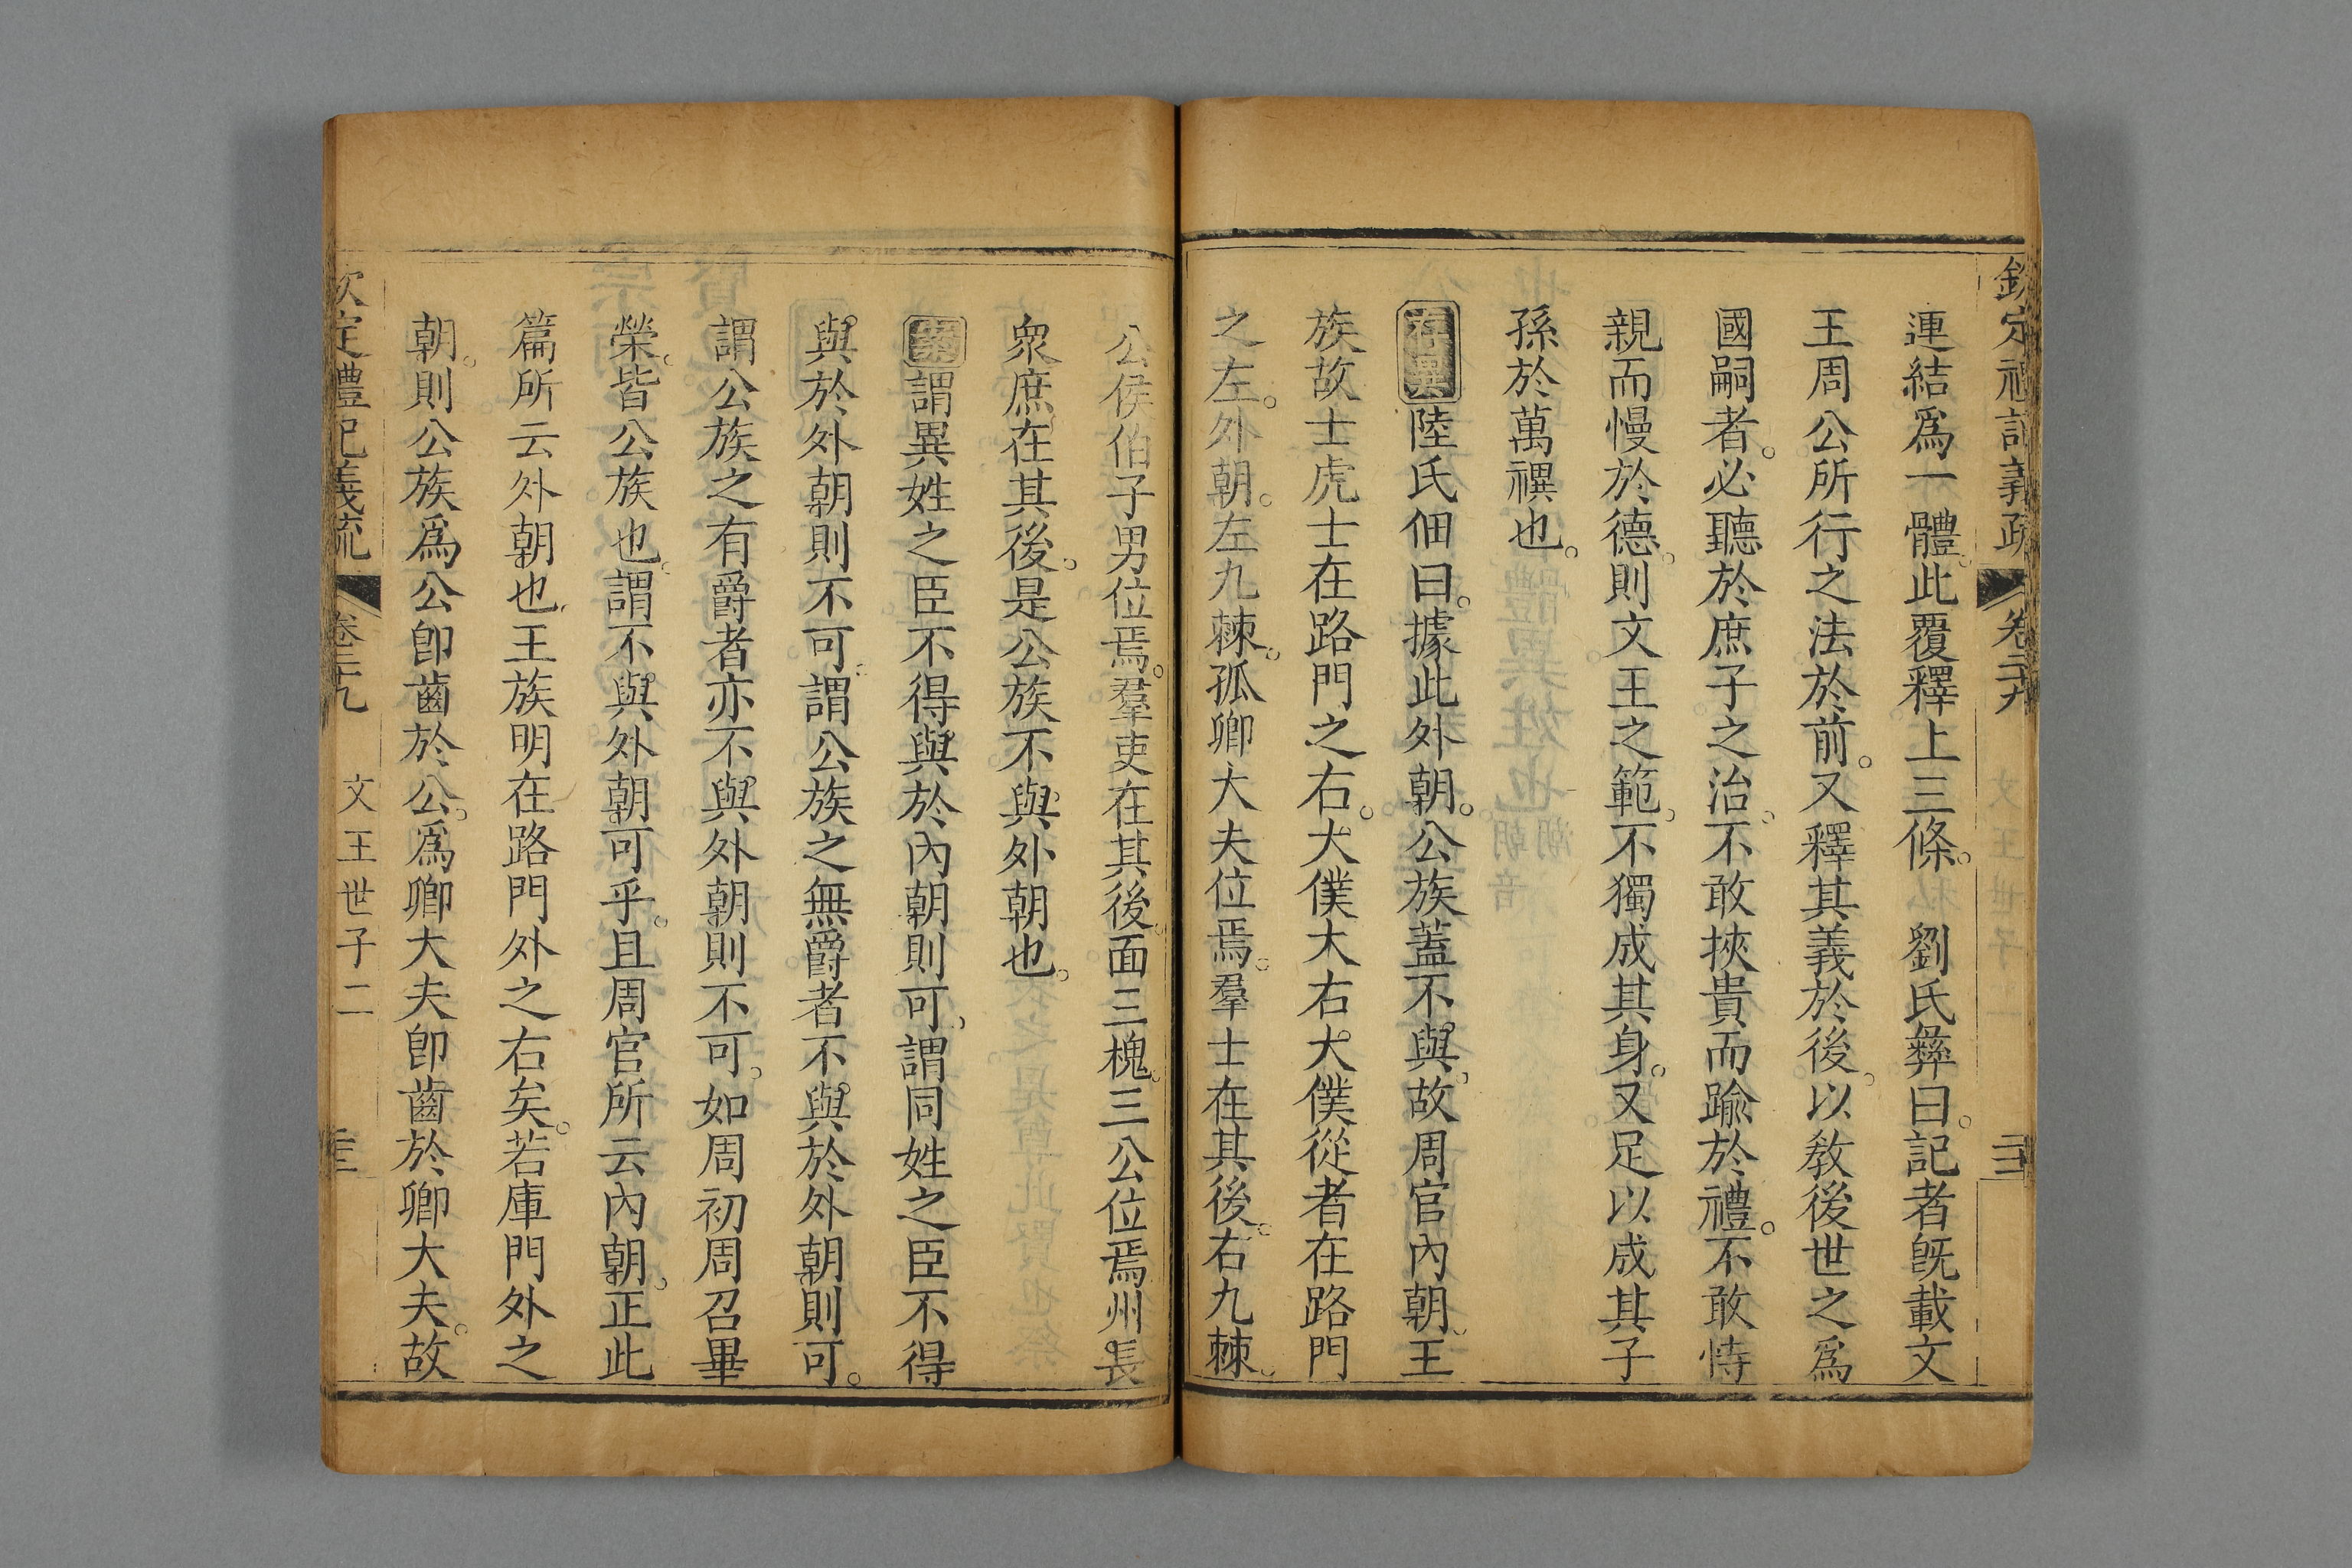 欽定禮記義疏 卷二十九
連結爲一體。此覆釋上三條。 劉氏彝曰。記者旣載文
王周公所行之法於前。又釋其義於後。以敎後世之爲
國嗣者。必聽於庶子之治。不敢挾貴而踰於禮。不敢恃
親而慢於德。則文王之範。不獨成其身。又足以成其子
孫於萬禩也。
存異陸氏佃曰。據此外朝。公族蓋不與。故周官內朝。王
族故士虎士在路門之右。大僕大右大僕從者在路門
之左。外朝。左九棘。孤卿大夫位焉。羣士在其後。右九棘。
公侯伯子男位焉。羣吏在其後。面三槐。三公位焉。州長
衆庶在其後。是公族不與外朝也。
案謂異姓之臣不得與於內朝則可。謂同姓之臣不得
與於外朝則不可。謂公族之無爵者不與於外朝則可。
謂公族之有爵者亦不與外朝則不可。如周初周召畢
榮。皆公族也。謂不與外朝可乎。且周官所云內朝。正此
篇所云外朝也。王族明在路門外之右矣。若庫門外之
朝。則公族爲公卽齒於公。爲卿大夫卽齒於卿大夫。故
欽定禮記義疏 卷二十九 文王世子二